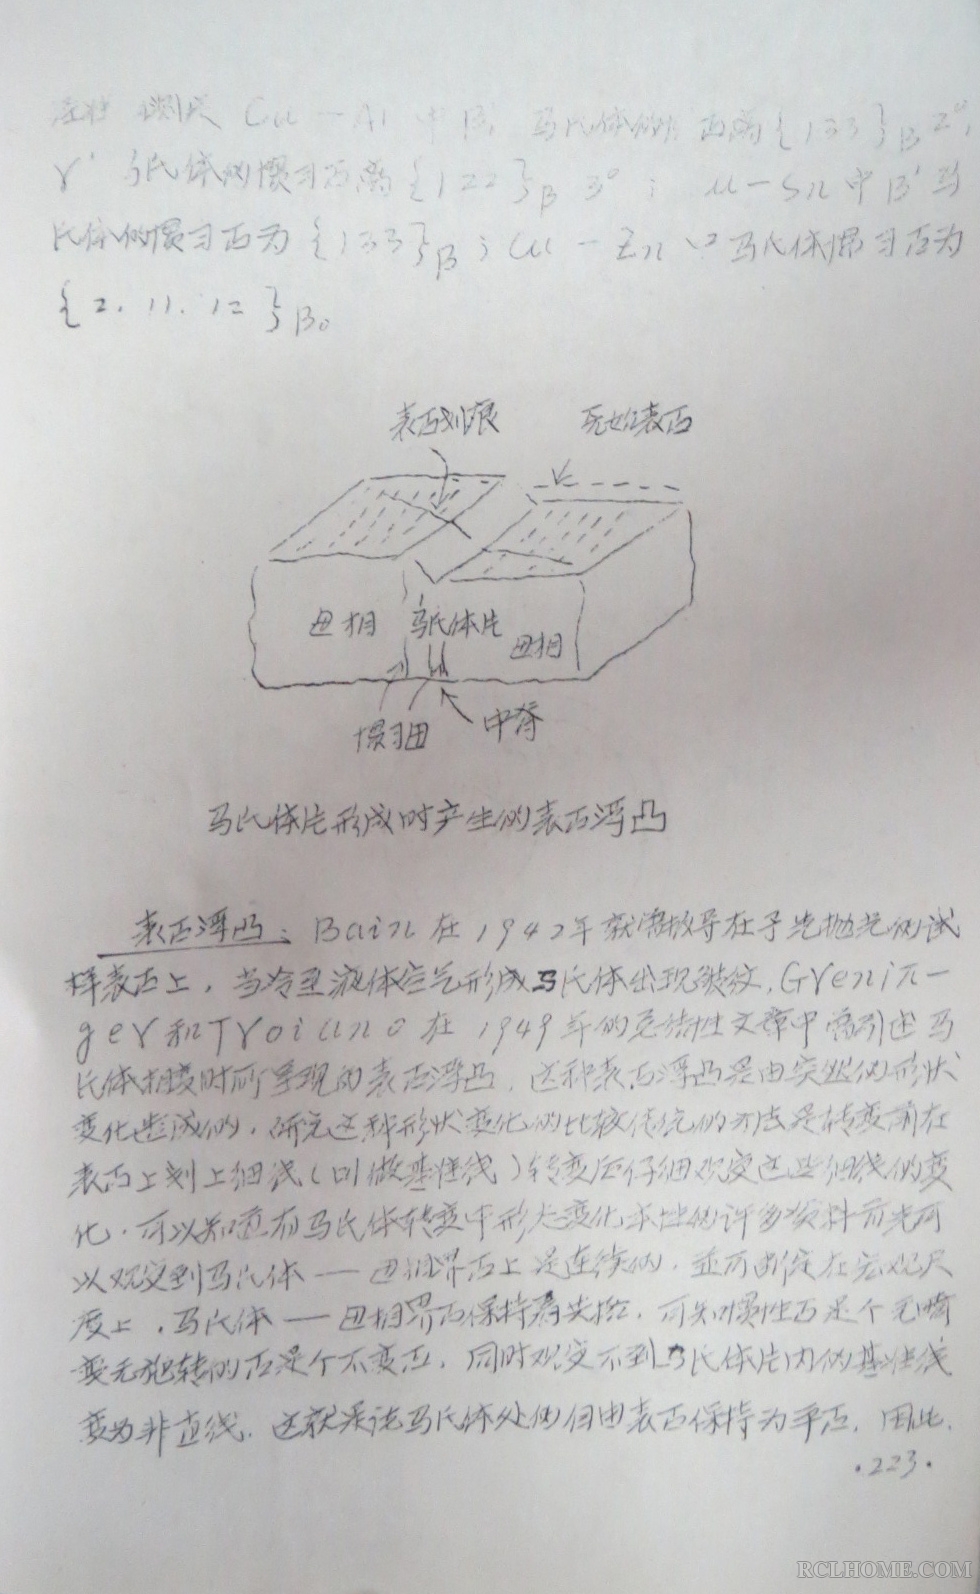 Cu—Al 中 β' 马氏体的 面离{133}β 2°,
γ' 马氏体的惯习面离{122}β 3°; u—Sn 中β'马
氏体的惯习面为{133}β; Cu—Zn 马氏体惯习面为
{2.11.12}β。
表面划痕
原始表面
母相
马氏体片
母相
惯习面
中脊
马氏体片形成时产生的表面浮凸
表面浮凸: Bain 在 1942年 报导在予先抛光的试
样表面上,当冷至液体空气形成马氏体出现皱纹,Grenin—
ger和Troiano在1949年的总结性文章中 引述马
氏体相变时所呈现的表面浮凸,这种表面浮凸是由突然的形状
变化造成的,研究这种形状变化的比较传统的方法是转变前在
表面上刻上细线(叫做基准线)转变后仔细观察这些细线的变
化.可以知道有马氏体转变中形状变化本性的许多资料首先可
以观察到马氏体——母相界面上是连续的,并可断定在宏观尺
度上,马氏体——母相界面保持着共格,可知惯性面是个无畸
变无旋转的面是个不变面,同时观察不到马氏体片内的基准线
变为非直线.这就是说马氏体处的自由表面保持为平面,因此,
·223·
RCLHOME.COM